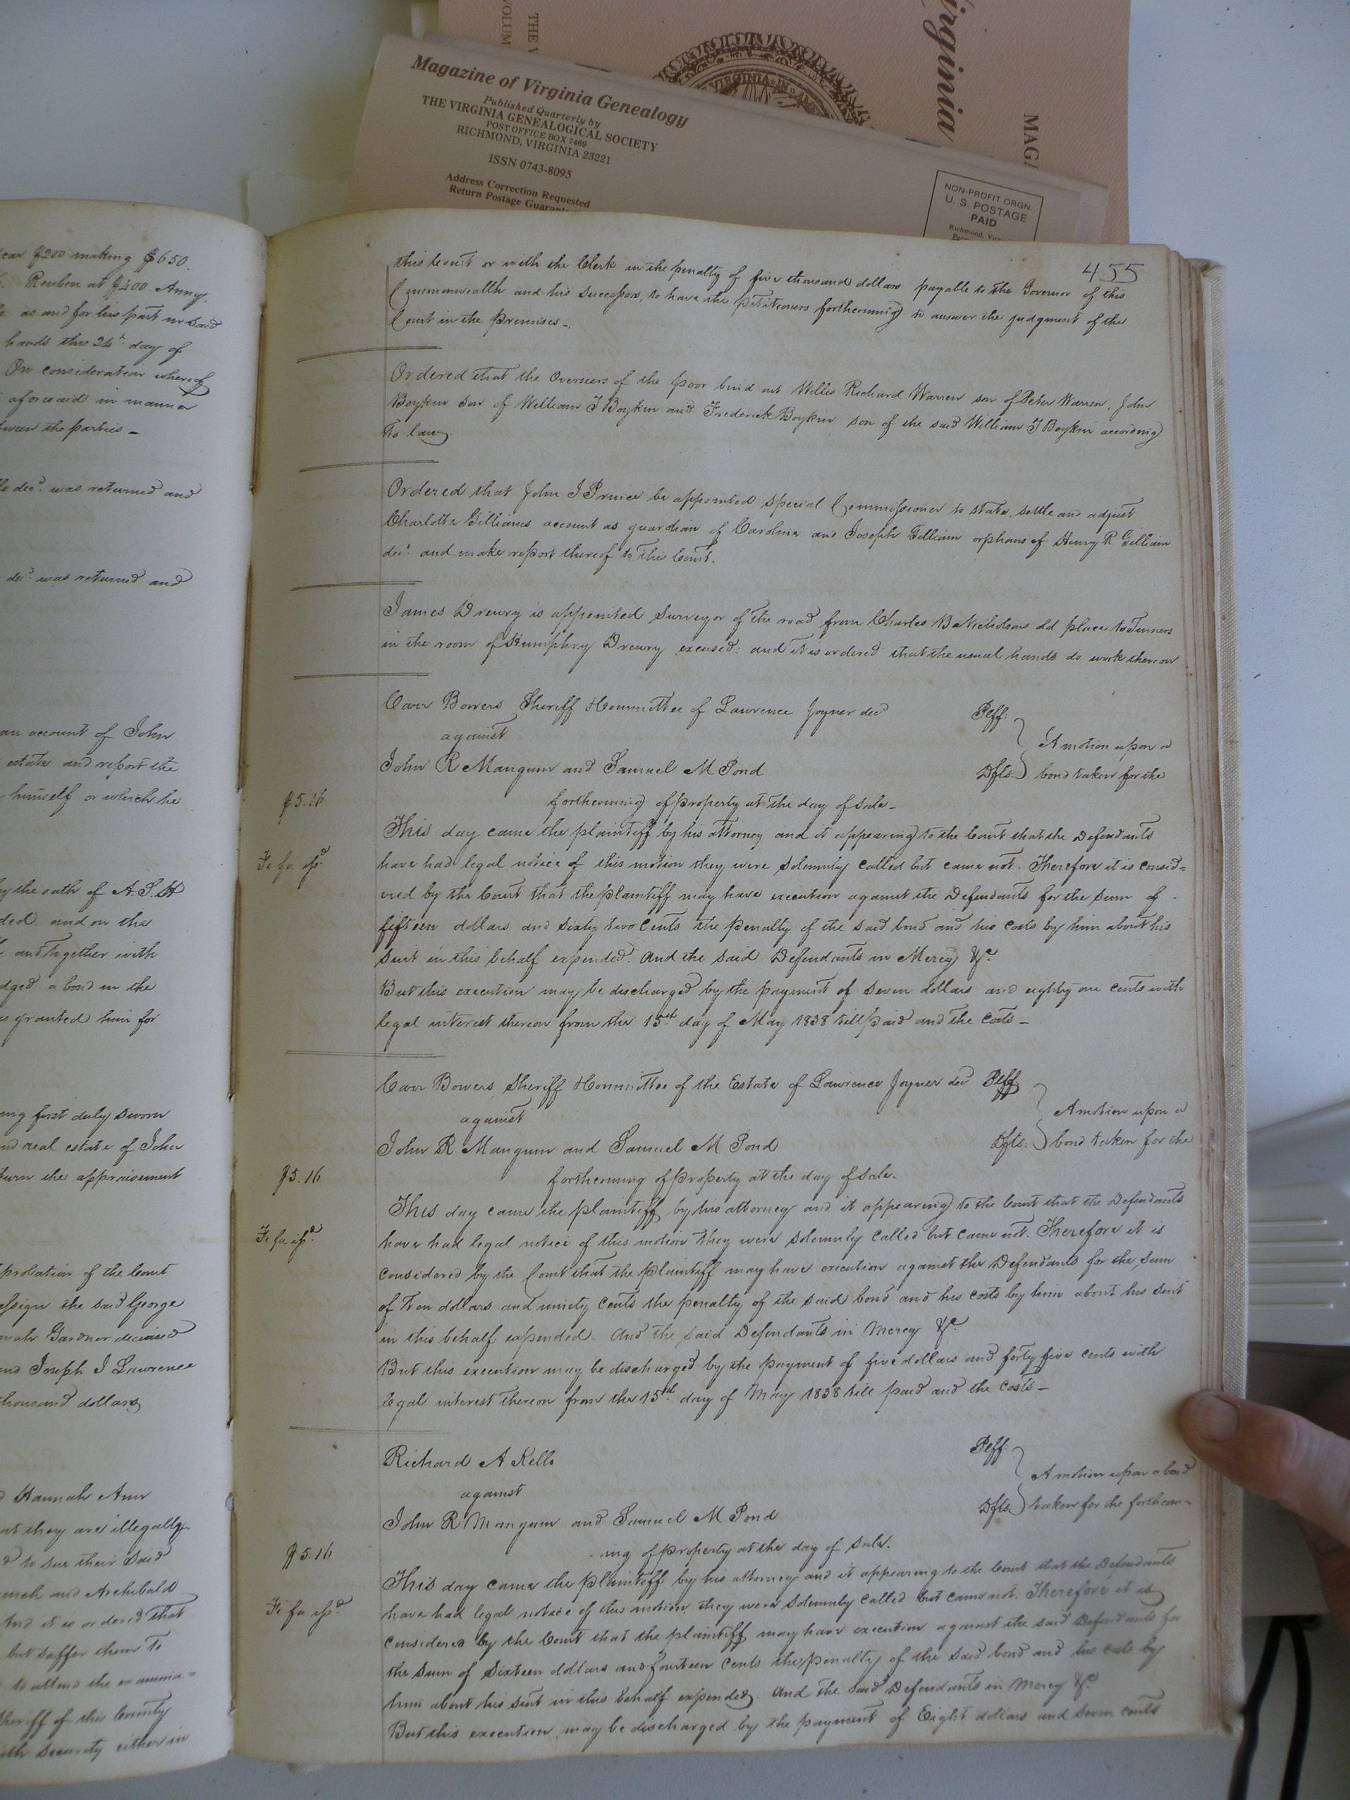 THE V
VOLUM
Virginia
MAGA
VIRGINIA
Magazine of Virginia Genealogy
Published Quarterly by
THE VIRGINIA GENEALOGICAL SOCIETY
POST OFFICE BOX 7469
RICHMOND, VIRGINIA 23221
ISSN 0743-8095
Address Correction Requested
Return Postage Guarant
NON-PROFIT ORGN.
U. S. POSTAGE
PAID
Richmond, Vir
$200 making $650.
Reuben at $400 Anny.
as and for his part in said
hands this 24th day of
On consideration whereof
aforesaid in manner
between the parties _
decd. was returned and
decd. was returned and
an account of John
estate and report the
himself or which he
by the oath of A. S. H
ded. and on the
and together with
dged a bond in the
is granted him for
ing first duly sworn
and real estate of John
turn the appraisement
probation of the Court
assign the said George
Gardner deceased
and Joseph J Lawrence
thousand dollars
Hannah Ann
at they are illegally
d to sue their said
and Archibald
And it is ordered that
but suffer them to
to attend the examina=
Sheriff of this County
with security either in
455
this Court or with the Clerk in the penalty of five thousand dollars payable to the Governor of this
Commonwealth and his successors, to have the petitioners forthcoming to answer the judgment of the
Court in the premises _
Ordered that the Overseers of the poor bind out Willis Richard Warren son of Peter Warren, John
Boykin son of William J Boykin and Frederick Boykin son of the said William J Boykin according
to law.
Ordered that John J Prince be appointed special Commissioner to state, settle and adjust
Charlotte Gilliams account as guardian of Caroline and Joseph Gilliam orphans of Henry R Gilliam
decd. and make report thereof to this Court.
James Drewry is appointed surveyor of the road from Charles B Nicholsons old place to Turners
in the room of Humphrey Drewry excused: and it is ordered that the usual hands do work thereon
Carr Bowers Sheriff & Committee of Lawrence Joyner decd Plff.
against
A motion upon a
John R Mangum and Samuel M Pond Dfts. bond taken for the
$5.16
forthcoming of property at the day of sale _
This day came the plaintiff by his attorney and it appearing to the Court that the Defendants
Fi fa issd.
have had legal notice of this motion they were solemnly called but came not. Therefore it is consid=
ered by the Court that the plaintiff may have execution against the Defendants for the sum of
fifteen dollars and sixty two cents the penalty of the said bond and his costs by him about his
suit in this behalf expended. And the said Defendants in Mercy &c.
But this execution may be discharged by the payment of seven dollars and eighty one cents with
legal interest thereon from the 15th day of May 1838 till paid and the costs _
Carr Bowers Sheriff & Committee of the Estate of Lawrence Joyner decd Plff
against
A motion upon a
John R Mangum and Samuel M Pond Dfts. bond taken for the
$5.16
forthcoming of property at the day of sale.
This day came the plaintiff by his attorney and it appearing to the Court that the Defendants
Fi fa issd.
have had legal notice of this motion they were solemnly called but came not. Therefore it is
considered by the Court that the plaintiff may have execution against the Defendants for the sum
of ten dollars and ninety cents the penalty of the said bond and his costs by him about his suit
in this behalf expended. And the said Defendants in Mercy &c.
But this execution may be discharged by the payment of five dollars and forty five cents with
legal interest thereon from the 15th day of May 1838 till paid and the costs _
Richard A Kello Plff.
against
A motion upon a bond
John R Mangum and Samuel M Pond Dfts. taken for the forthcom=
$5.16
ing of property at the day of sale.
This day came the plaintiff by his attorney and it appearing to the Court that the Defendants
Fi fa issd.
have had legal notice of this motion they were solemnly called but came not. Therefore it is
considered by the Court that the plaintiff may have execution against the said Defendants for
the sum of sixteen dollars and fourteen cents the penalty of the said bond and his costs by
him about his suit in this behalf expended. And the said Defendants in Mercy &c
But this execution may be discharged by the payment of Eight dollars and seven cents